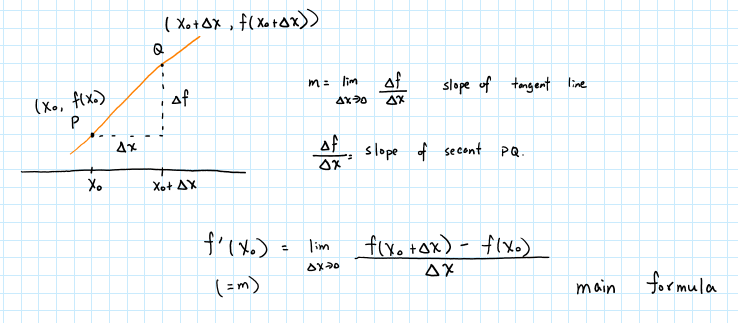 (x₀+Δx , f(x₀+Δx))
Q
(x₀, f(x₀)
P
Δf
Δx
x₀
x₀+ Δx
m = lim Δx→0 Δf/Δx slope of tangent line
Δf/Δx = slope of secant PQ.
f'(x₀) = lim Δx→0 (f(x₀+Δx) - f(x₀))/Δx
(=m)
main formula